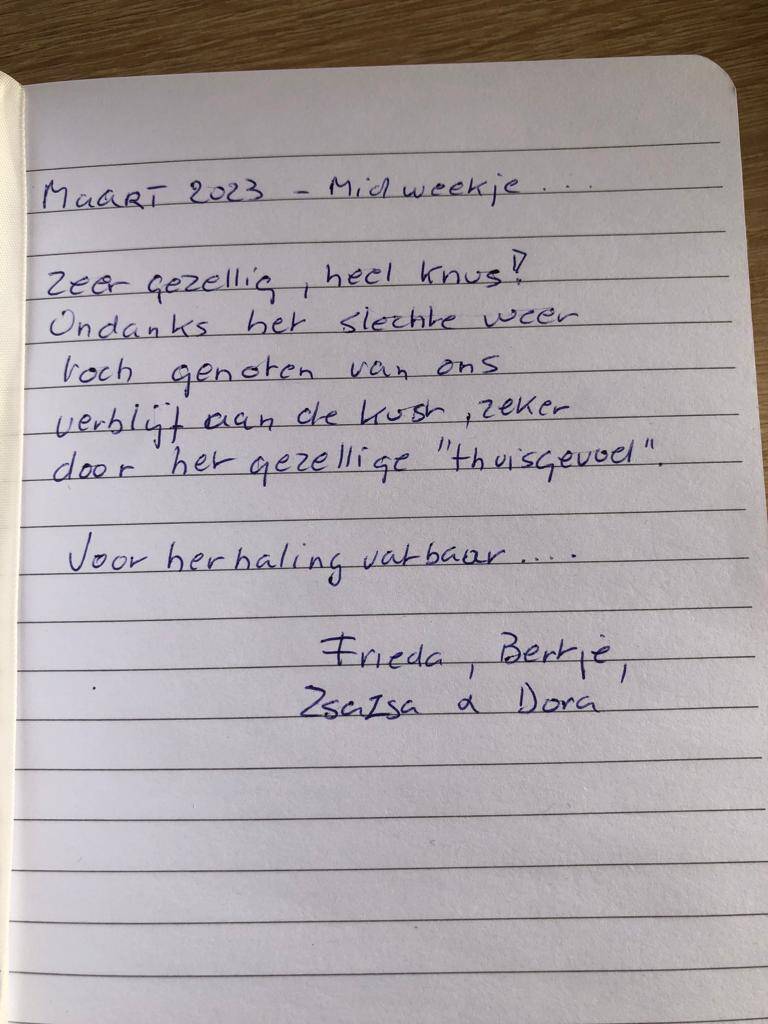 MaaRT 2023 - Midweekje ....
Zeer gezellig, heel knus!
Ondanks het slechte weer
toch genoten van ons
verblijf aan de kust, zeker
door het gezellige "thuisgevoel".
Voor herhaling vatbaar ....
Frieda, Bertje,
ZsaZsa & Dora